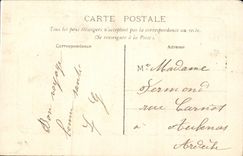 CARTE POSTALE
Tous les pays étrangers n'acceptent pas la correspondance au recto.
(Se renseigner à la Poste).
Correspondance
Adresse
Bon voyage
bonne santé
Mme Madame
Fermond
rue Carnot
à Aubenas
Ardèche